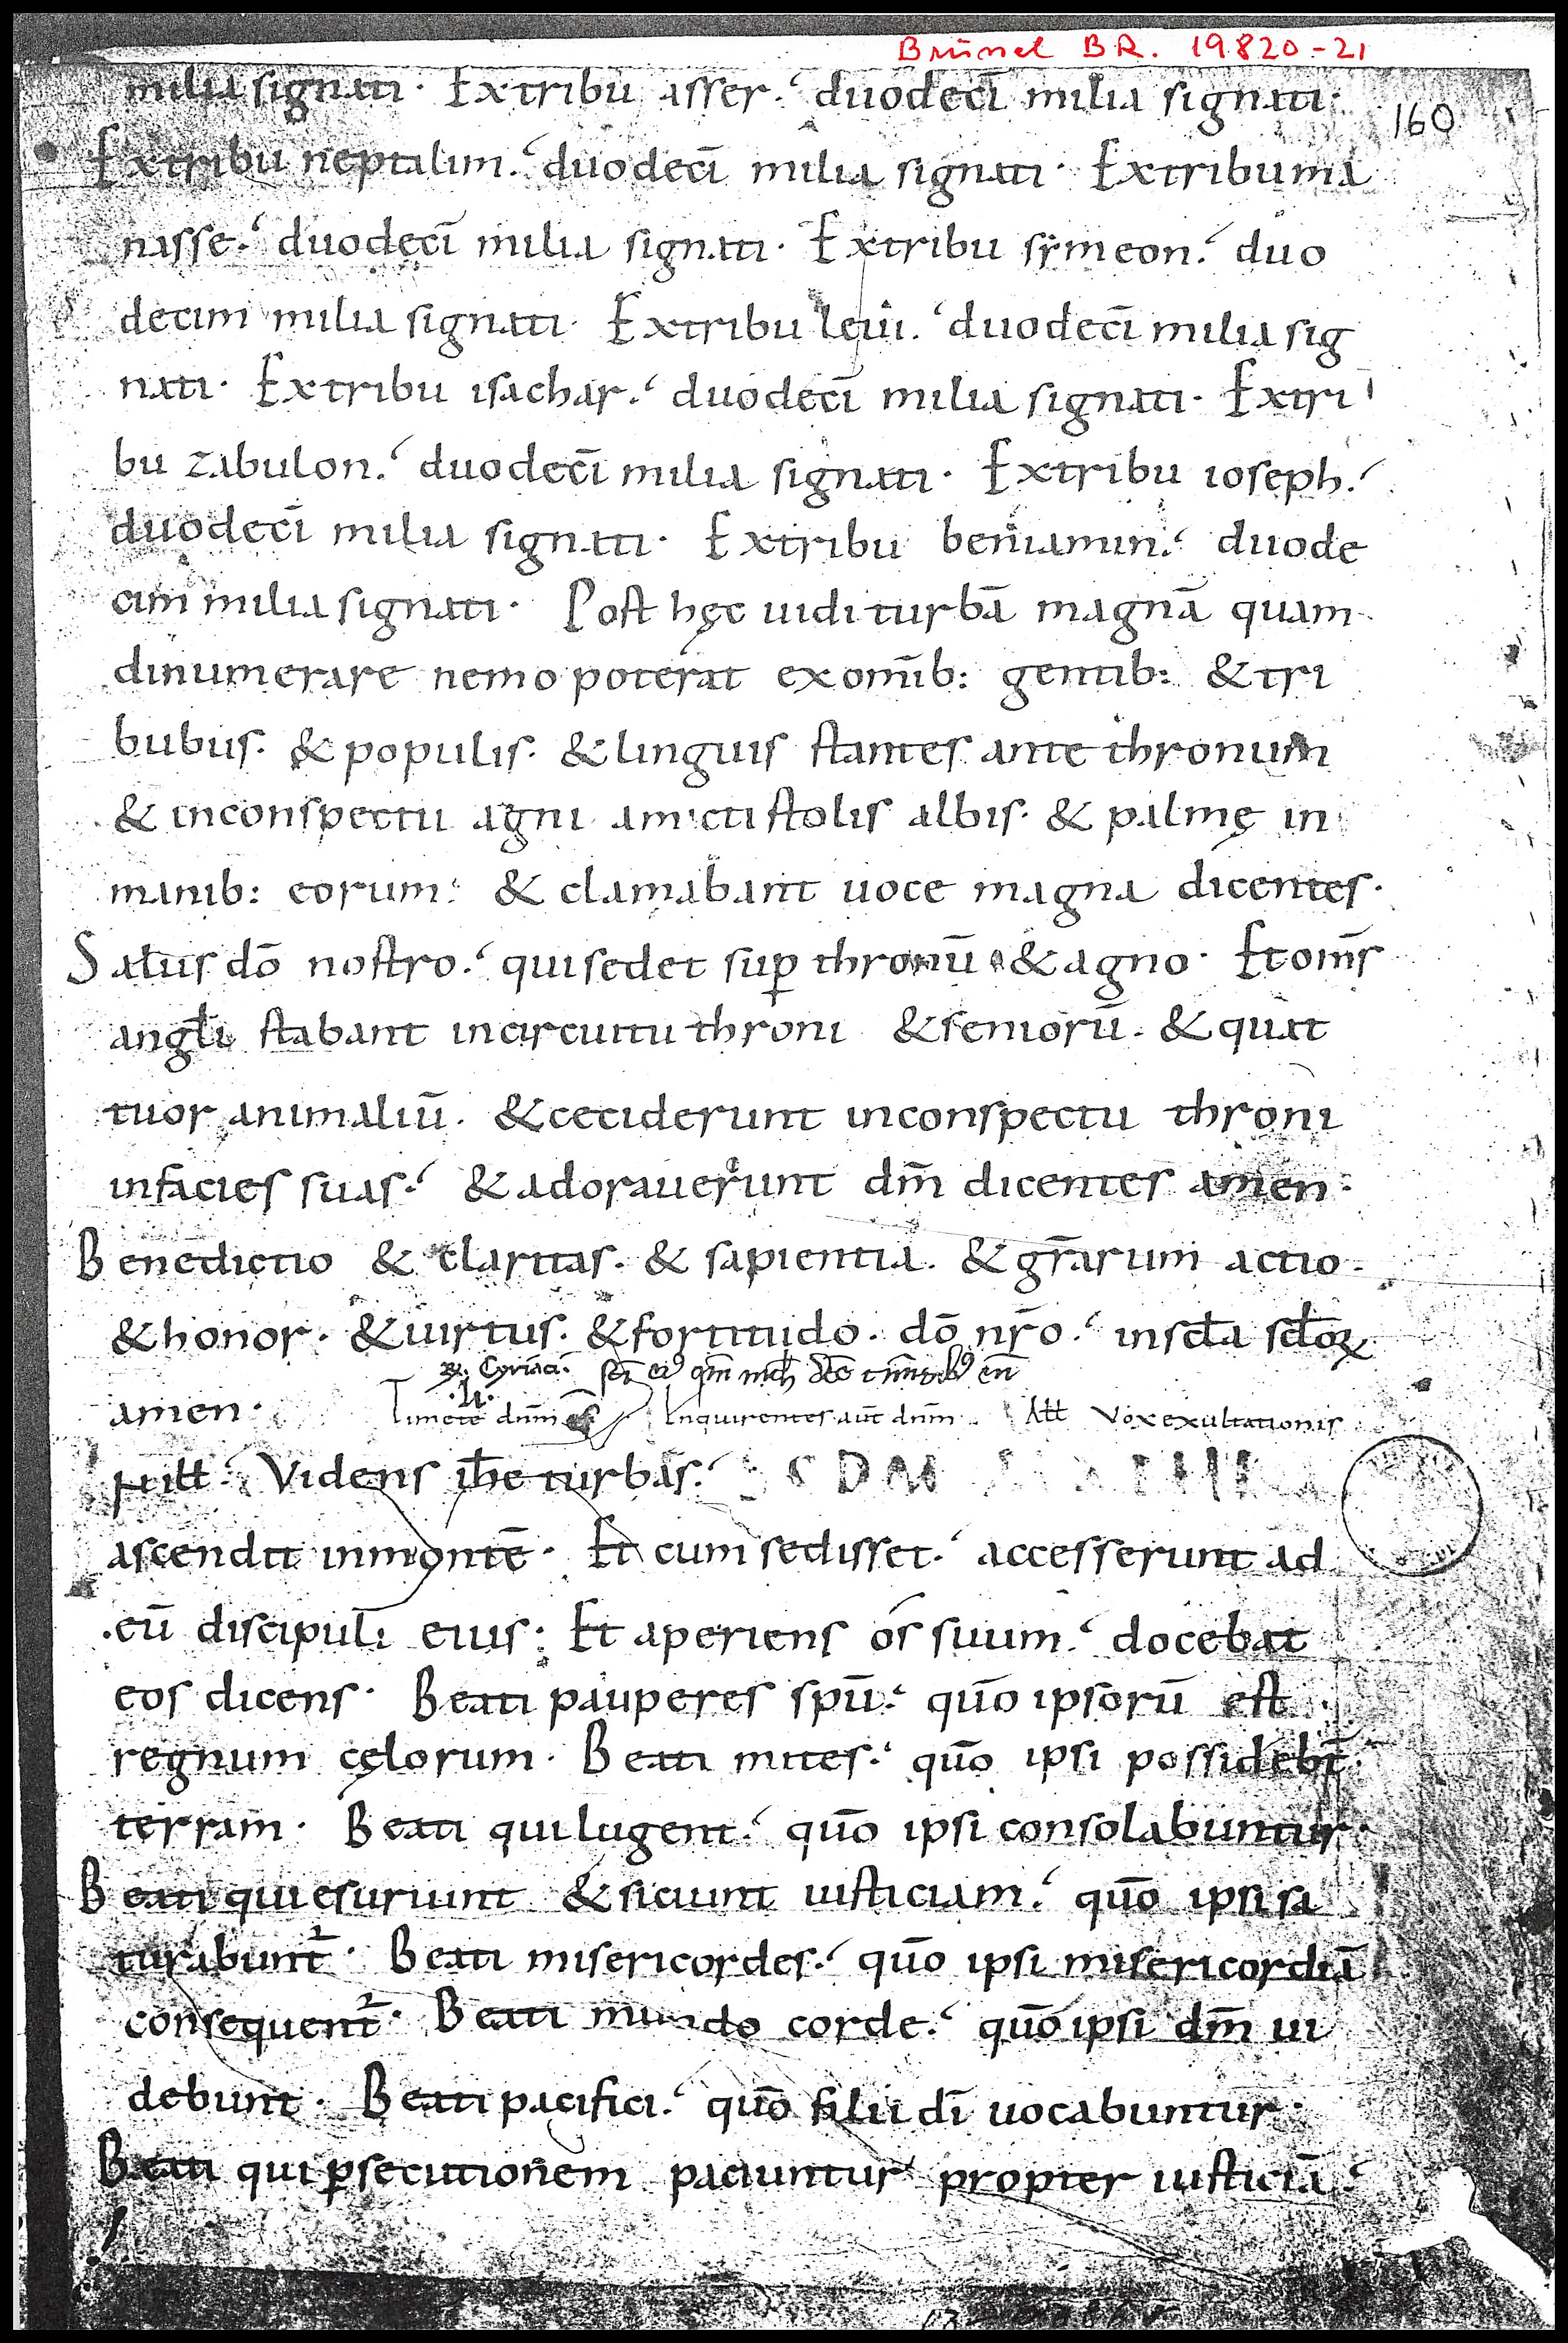 Brüssel BR. 19820-21
160
milia signati· Extribu asser.ʼ duodecī milia signati·
Extribu neptalim.ʼ duodecī milia signati· Extribu ma
nasse.ʼ duodecī milia signati· Extribu sẏmeon.ʼ duo
decim milia signati· Extribu leui.ʼ duodecī milia sig
nati· Extribu isachar.ʼ duodecī milia signati· Extri
bu zabulon.ʼ duodecī milia signati· Extribu ioseph.ʼ
duodecī milia signati· Extribu beniamin.ʼ duode
cim milia signati· Post hęc uidi turbā magnā quam
dinumerare nemo poterat exom̄ib: gentib: & tri
bubus· & populis· & linguis stantes ante thronum
& inconspectu agni amicti stolis albis· & palmę in
manib: eorum: & clamabant uoce magna dicentes·
Salus dō nostro.ʼ quisedet sup̄ thronū & agno· Et om̄s
angl̄i stabant incircuitu throni & seniorū· & quat
tuor animaliū· & ceciderunt inconspectu throni
infacies suas.ʼ & adorauerunt dm̄ dicentes amen·
Benedictio & claritas· & sapientia· & gr̄arum actio·
& honor· & uirtus· & fortitudo· dō nr̄o.ʼ inscl̄a scl̄oꝝ
℟. Cyriaci.
amen· Timete dn̄m Inquirentes aut̄ dn̄m All̄ Vox exultationis
Videns ih̄c turbas.ʼ
ascendit inmontē· Et cum sedisset.ʼ accesserunt ad
eū discipuli eius: Et aperiens os suum.ʼ docebat
eos dicens· Beati pauperes spū.ʼ qūo ipsorū est
regnum cęlorum· Beati mites.ʼ qūo ipsi possidebt̄
terram· Beati qui lugent.ʼ qūo ipsi consolabuntur·
Beati qui esuriunt & siciunt iusticiam.ʼ qūo ipsi sa
turabunt̄· Beati misericordes.ʼ qūo ipsi misericordiā
consequent̄· Beati mundo corde.ʼ qūo ipsi dm̄ ui
debunt· Beati pacifici.ʼ qūo filii dī uocabuntur·
Beati qui p̱secutionem paciuntur propter iusticiā.ʼ